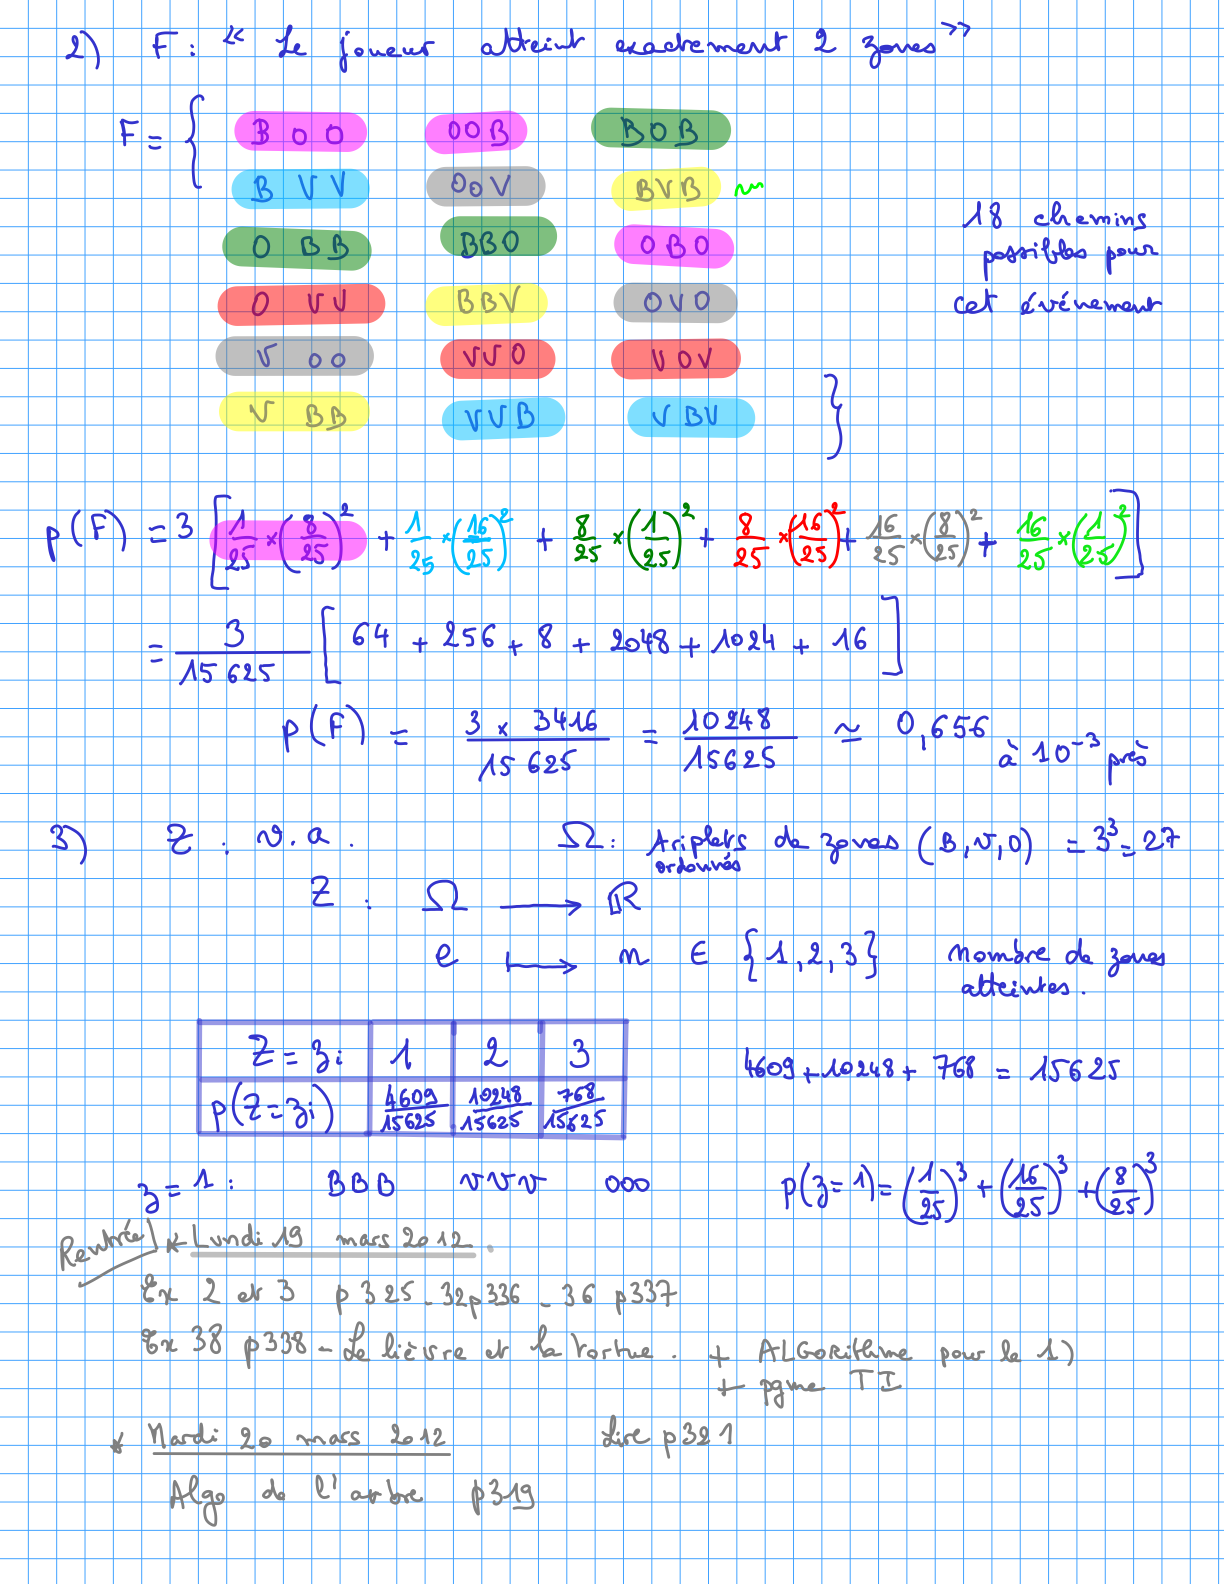 2) F : « Le joueur atteint exactement 2 zones »
F = { B O O   O O B   B O B
B V V   O O V   B V B
O B B   B B O   O B O
O V V   B B V   O V O
V O O   V V O   V O V
V B B   V V B   V B V }
18 chemins
possibles pour
cet événement
p(F) = 3 [ 1/25 × (8/25)² + 1/25 × (16/25)² + 8/25 × (1/25)² + 8/25 × (16/25)² + 16/25 × (8/25)² + 16/25 × (1/25)² ]
= 3/15625 [ 64 + 256 + 8 + 2048 + 1024 + 16 ]
p(F) = 3 × 3416/15625 = 10248/15625 ≃ 0,656 à 10⁻³ près
3) Z : v.a. Ω : triplets de zones (B, V, O) = 3³ = 27
ordonnés
Z : Ω ⟶ ℝ
e ⟼ n ∈ {1, 2, 3} nombre de zones
atteintes.
Z = zi 1 2 3
p(Z = zi) 4609/15625 10248/15625 768/15625
4609 + 10248 + 768 = 15625
z = 1 : BBB VVV OOO p(z = 1) = (1/25)³ + (16/25)³ + (8/25)³
Rentrée * Lundi 19 mars 2012.
Ex 2 et 3 p 325 - 32 p 336 - 36 p 337
Ex 38 p 338 - Le lièvre et la tortue. + ALGorithme pour le 1)
+ pgme TI
* Mardi 20 mars 2012 Lire p 321
Algo de l'arbre p 319